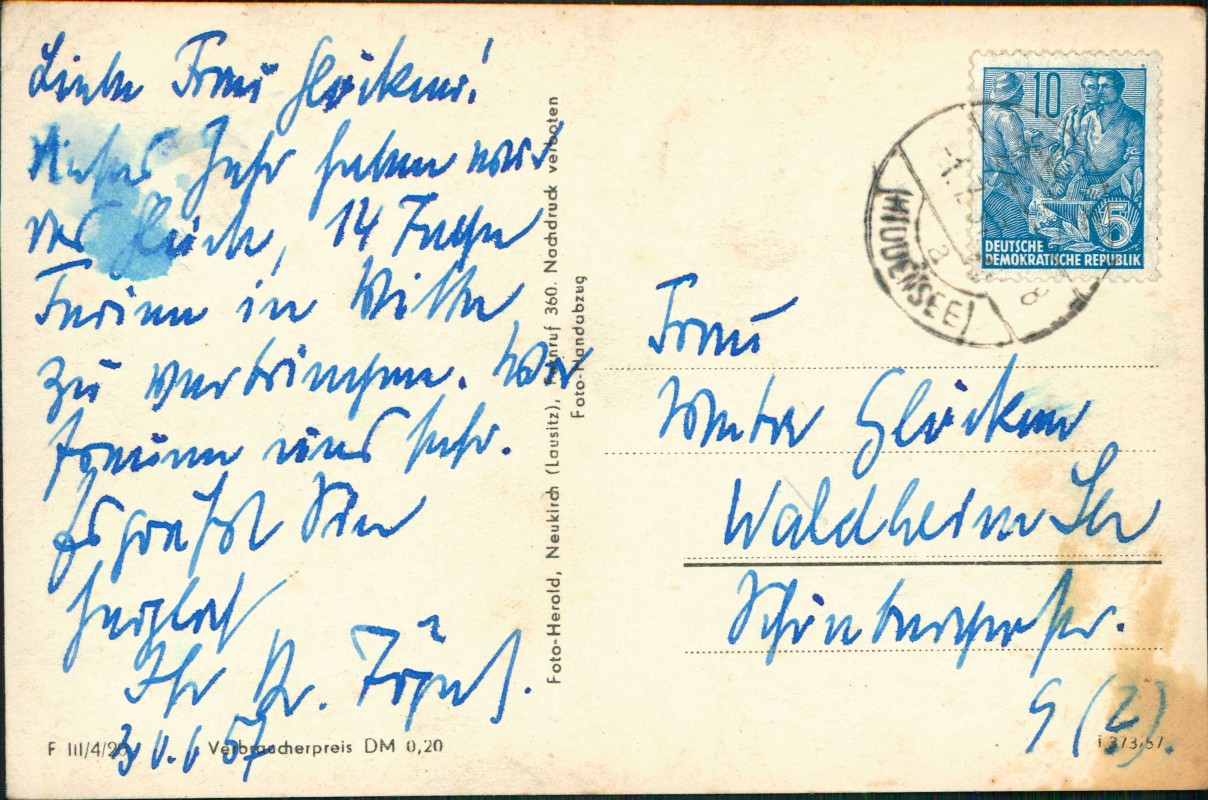 Liebe Frau Glöckner!
Dieses Jahr haben wir
das Glück, 14 Tage
Ferien in Vitte
zu verbringen. Wir
freuen uns sehr.
Es grüßt Sie
herzlich
Ihr
30.6.57
F III/4/26 Verbraucherpreis DM 0,20
Foto-Herold, Neukirch (Lausitz), Fernruf 360. Nachdruck verboten
Foto-Handabzug
10
5
DEUTSCHE
DEMOKRATISCHE REPUBLIK
(HIDDENSEE)
a
8
Frau
Glöckner
Waldheim Sa
Schönbergerstr.
9 (2).
T 373/57